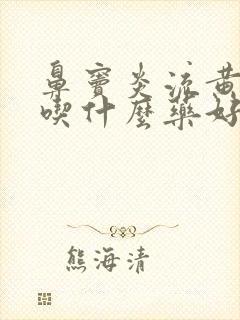 鼻窦炎流黄
喫什麼藥好
熊海清